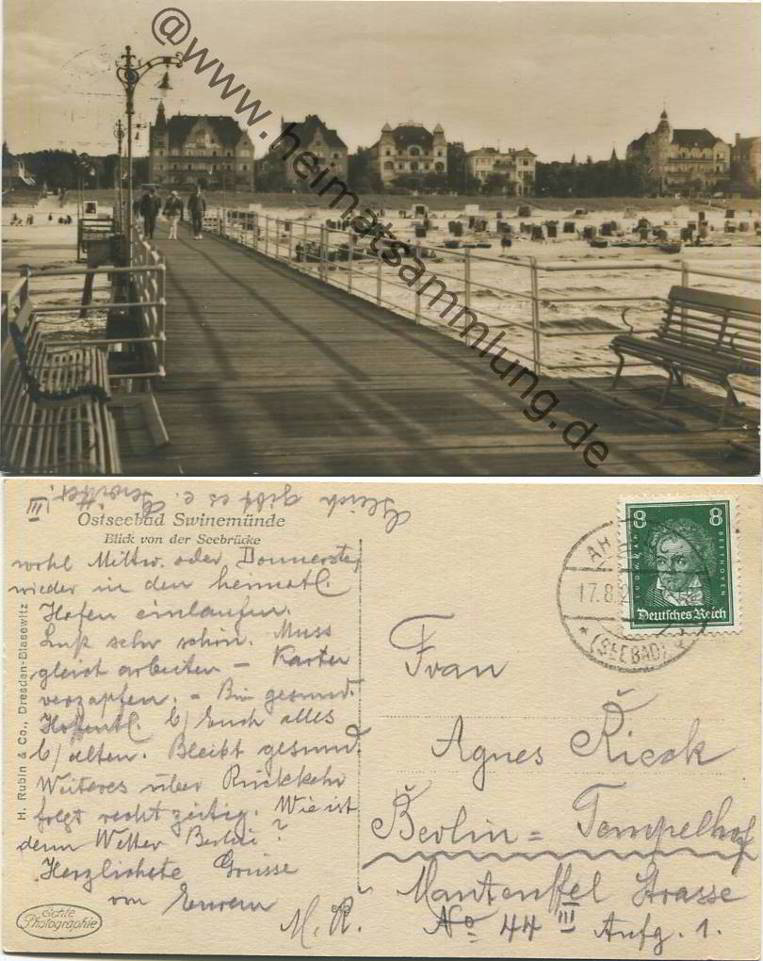 @www.heimatsammlung.de
Gleich gibt es e. Gewitter! III
Ostseebad Swinemünde
Blick von der Seebrücke
wohl Mittw. oder Donnerstg.
wieder in den heimatl.
Hafen einlaufen.
Luft sehr schön. Muss
gleich arbeiten – Karten
verzapfen. – Bin gesund.
Hoffentl. b/ Euch alles
b/ alten. Bleibt gesund.
Weiteres über Rückkehr
folgt rechtzeitig. Wie ist
denn Wetter Berlin?
Herzlichste Grüsse
von Eurem
M. R.
H. Rubin & Co., Dresden-Blasewitz
Echte
Photographie
8 8
LUDWIG VAN BEETHOVEN
Deutsches Reich
AH
17.8.2
* (SEEBAD)
Frau
Agnes Rieck
Berlin = Tempelhof
Manteuffel Strasse
No 44 III Aufg. 1.